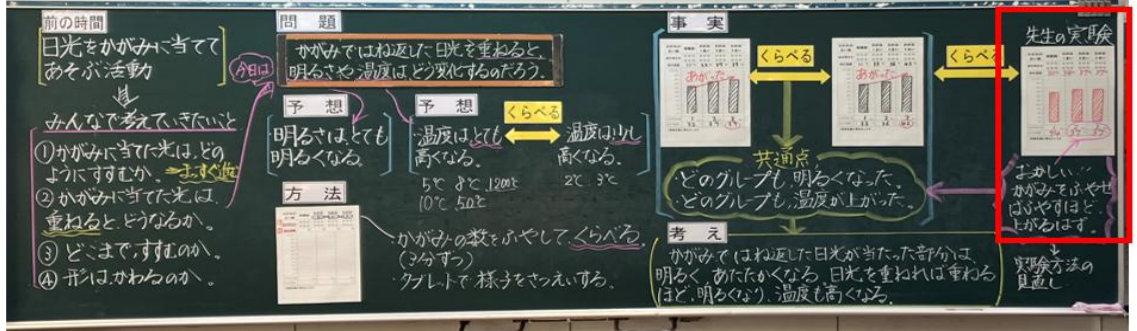 前の時間
日光をかがみに当てて
あそぶ活動
みんなで考えていきたいこと
①かがみに当てた光は、どの
ようにすすむか。
②かがみに当てた光は、
重ねると、どうなるか。
③どこまで、すすむのか。
④形はかわるのか。
今日は
問題
かがみではね返した日光を重ねると、
明るさや、温度は、どう変化するのだろう。
予想
明るさは、とても
明るくなる。
予想
温度はとても
高くなる。
5℃ 8℃ 1200℃
10℃ 50℃
くらべる
温度は少し
高くなる。
2℃ 3℃
方法
・かがみの数をふやして、くらべる。
(3分ずつ)
・タブレットで様子をさつえいする。
事実
あがった
くらべる
くらべる
共通点
・どのグループも、明るくなった。
・どのグループも、温度が上がった。
考え
かがみではね返した日光が当たった部分は、
明るく、あたたかくなる。日光を重ねれば重ねる
ほど、明るくなり、温度も高くなる。
先生の実験
おかしい!!
かがみをふやせ
ばふやすほど、
上がるはず。
実験方法の
見直し